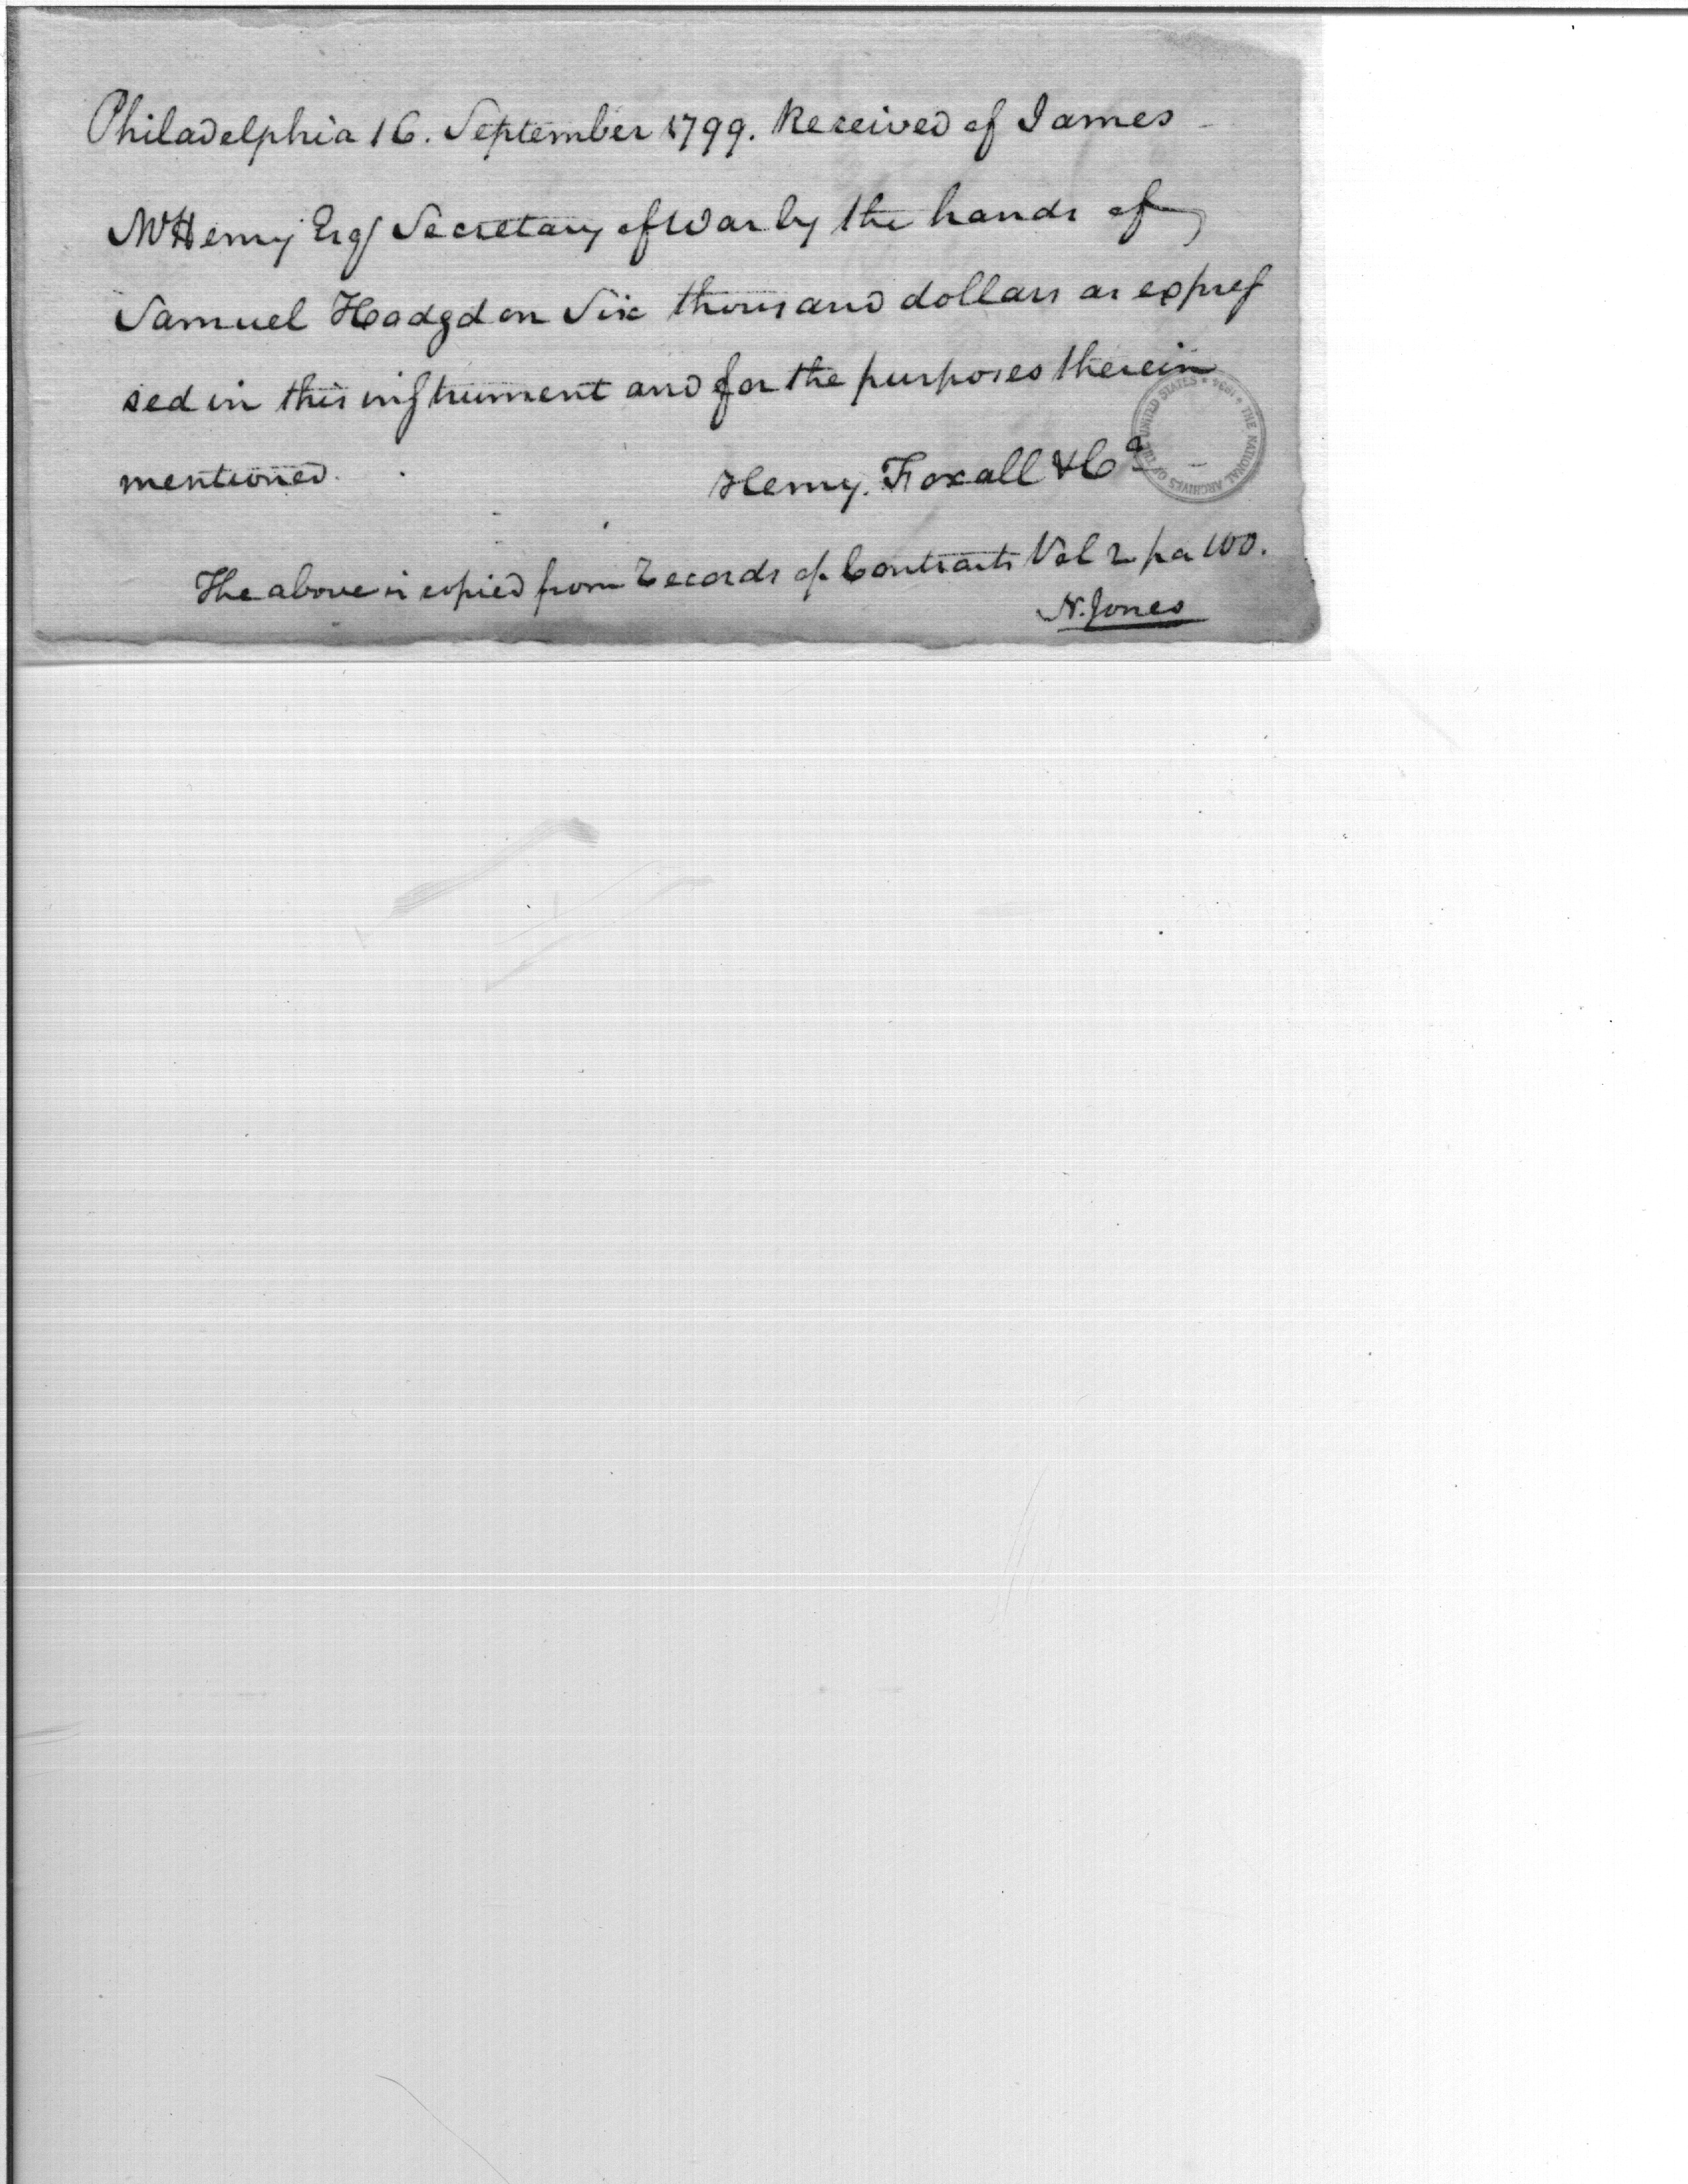 Philadelphia 16. September 1799. Received of James
McHenry Esqr Secretary of War by the hands of
Samuel Hodgdon Six thousand dollars as expres
sed in this instrument and for the purposes therein
mentioned.
Henry. Foxall & Co
The above is copied from Records of Contracts Vol 2 pa 100.
N. Jones
THE NATIONAL ARCHIVES OF THE UNITED STATES * 1934 *